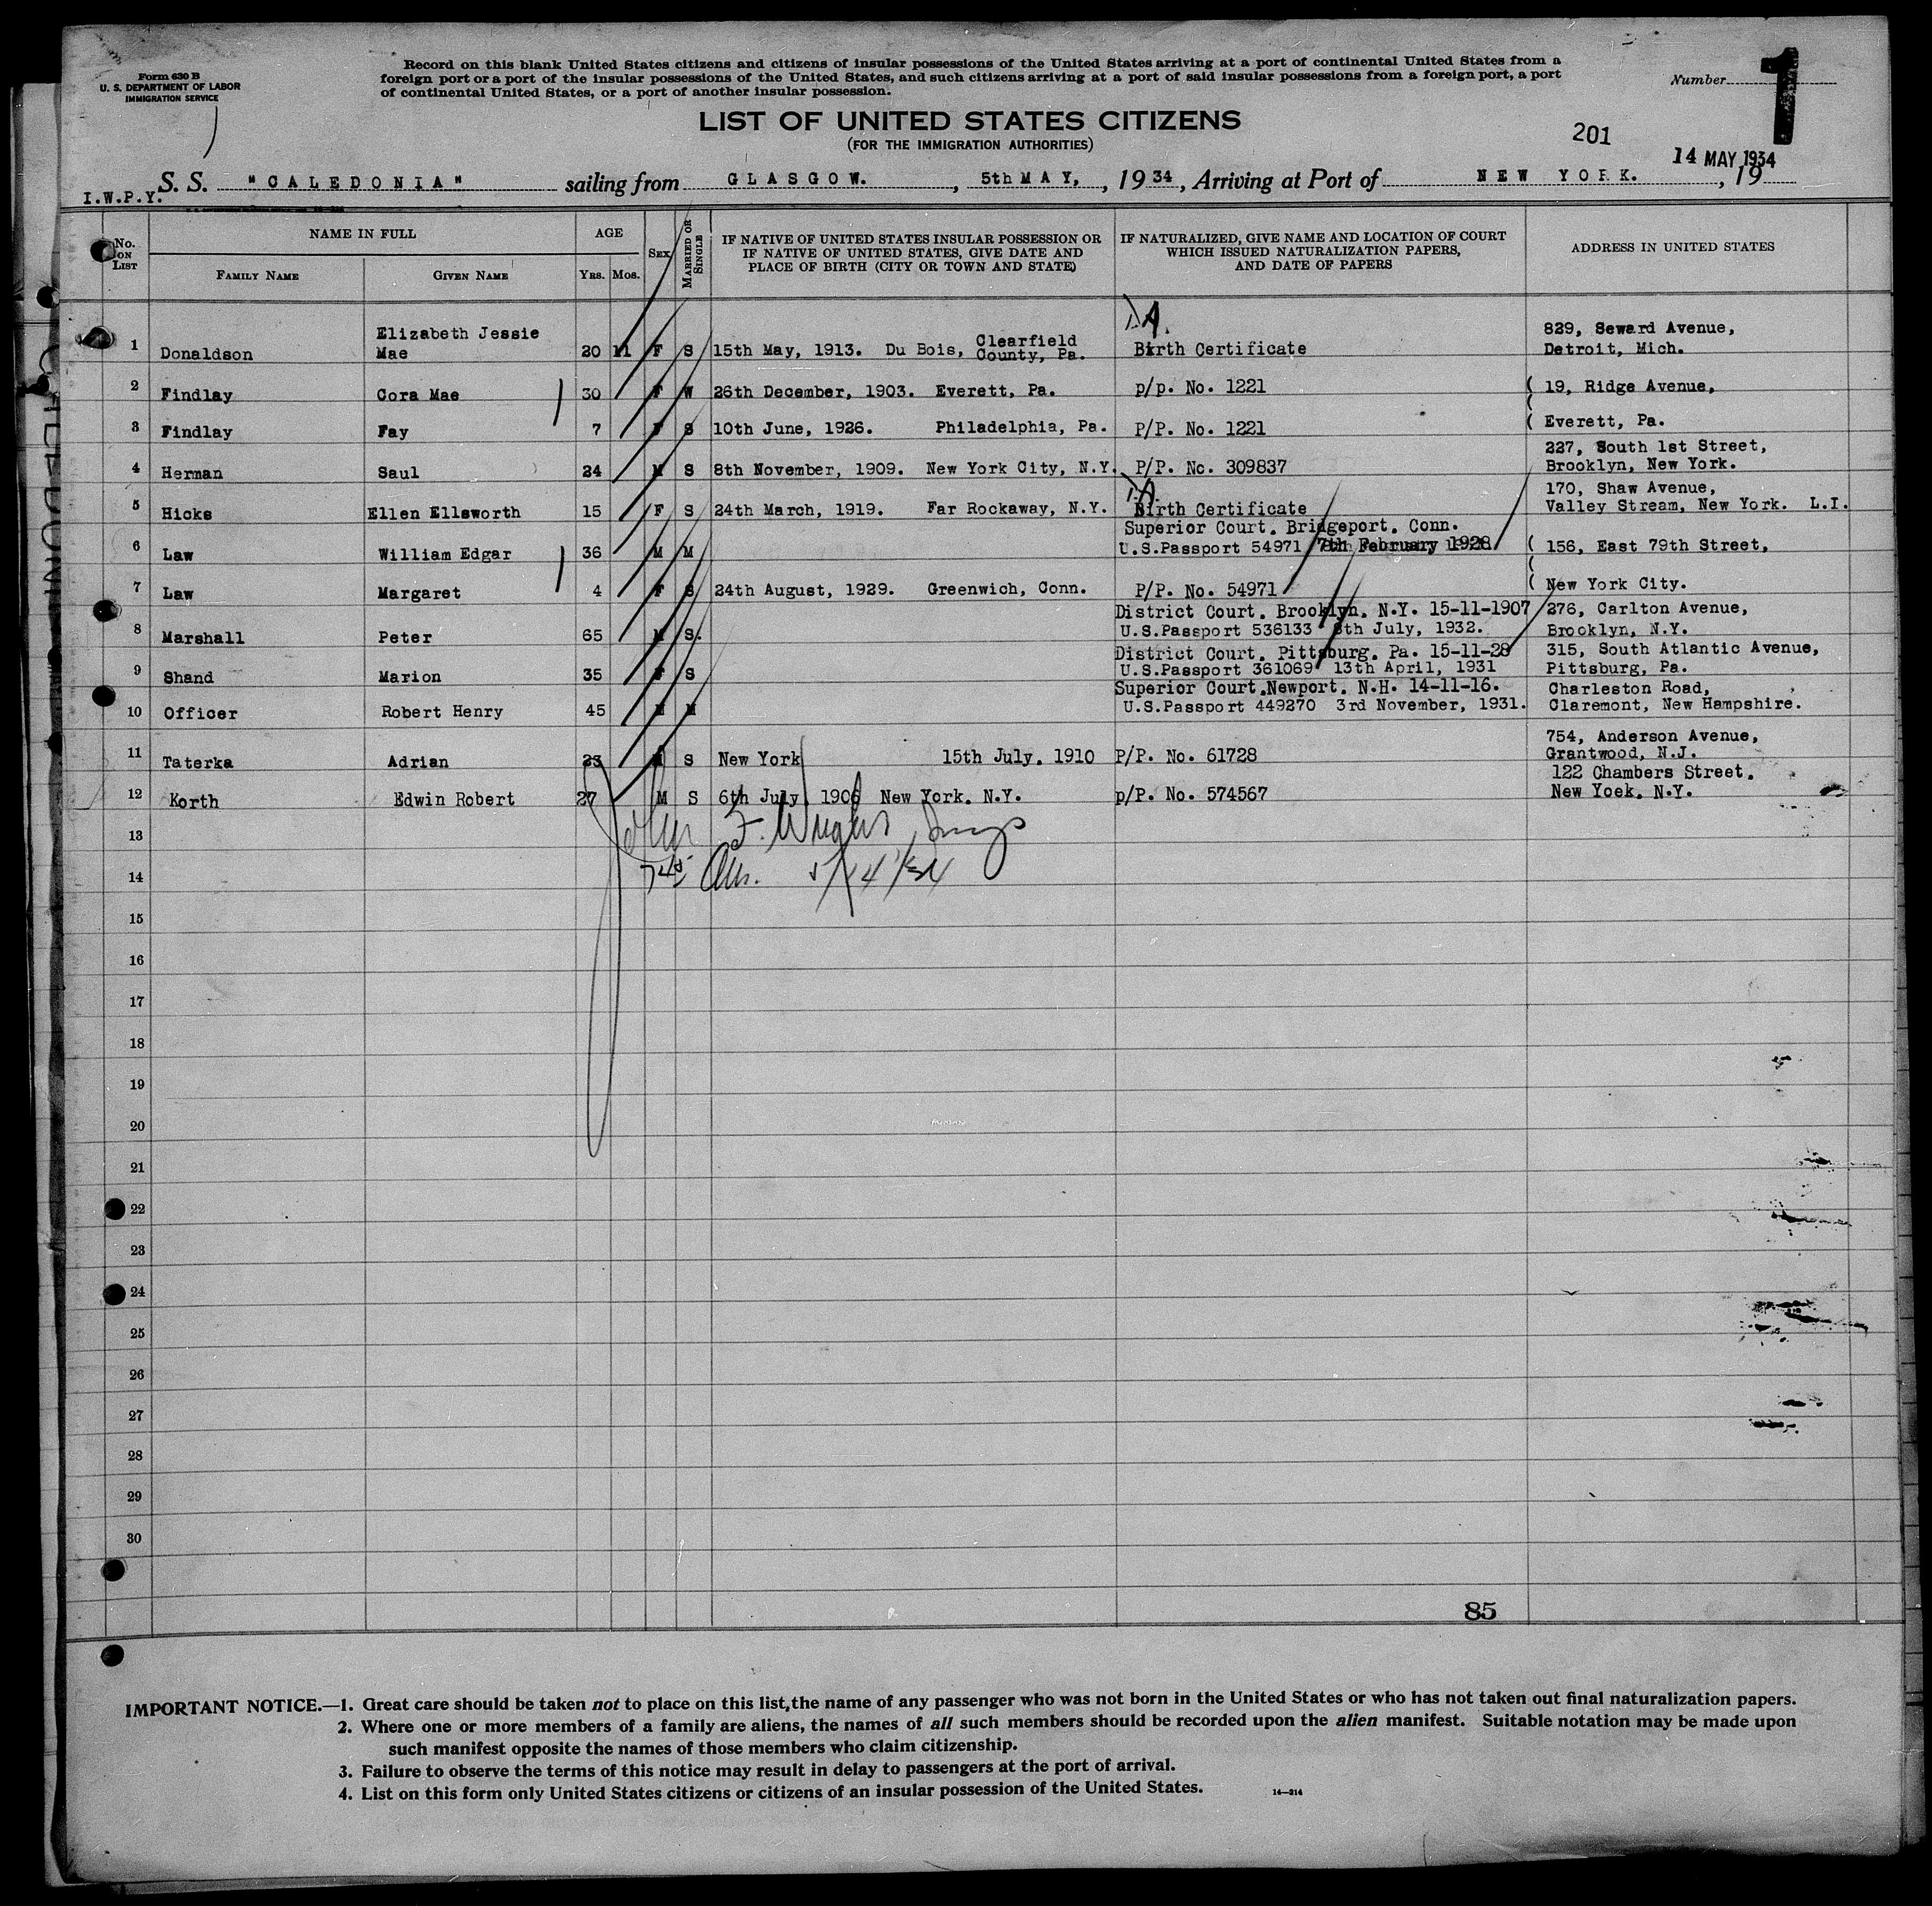 Form 630 B
U. S. DEPARTMENT OF LABOR
IMMIGRATION SERVICE
Record on this blank United States citizens and citizens of insular possessions of the United States arriving at a port of continental United States from a
foreign port or a port of the insular possessions of the United States, and such citizens arriving at a port of said insular possessions from a foreign port, a port
of continental United States, or a port of another insular possession.
Number 1
LIST OF UNITED STATES CITIZENS
(FOR THE IMMIGRATION AUTHORITIES)
201
14 MAY 1934
I.W.P.Y. S. S. "CALEDONIA" sailing from GLASGOW. , 5th MAY, , 1934 , Arriving at Port of NEW YORK. , 19
No. ON LIST
NAME IN FULL
FAMILY NAME GIVEN NAME
AGE
YRS. MOS.
SEX
MARRIED OR SINGLE
IF NATIVE OF UNITED STATES INSULAR POSSESSION OR
IF NATIVE OF UNITED STATES, GIVE DATE AND
PLACE OF BIRTH (CITY OR TOWN AND STATE)
IF NATURALIZED, GIVE NAME AND LOCATION OF COURT
WHICH ISSUED NATURALIZATION PAPERS,
AND DATE OF PAPERS
ADDRESS IN UNITED STATES
1 Donaldson Elizabeth Jessie Mae 20 11 F S 15th May, 1913. Du Bois, Clearfield County, Pa. Birth Certificate 829, Seward Avenue, Detroit, Mich.
2 Findlay Cora Mae 30 F W 26th December, 1903. Everett, Pa. p/p. No. 1221 ( 19, Ridge Avenue,
3 Findlay Fay 7 F S 10th June, 1926. Philadelphia, Pa. P/P. No. 1221 ( Everett, Pa.
4 Herman Saul 24 M S 8th November, 1909. New York City, N.Y. P/P. No. 309837 227, South 1st Street, Brooklyn, New York.
5 Hicks Ellen Ellsworth 15 F S 24th March, 1919. Far Rockaway, N.Y. Birth Certificate 170, Shaw Avenue, Valley Stream, New York. L.I.
6 Law William Edgar 36 M M Superior Court. Bridgeport. Conn. U.S.Passport 54971 7th February 1928 ( 156, East 79th Street,
7 Law Margaret 4 F S 24th August, 1929. Greenwich, Conn. P/P. No. 54971 ( New York City.
8 Marshall Peter 65 M S. District Court. Brooklyn. N.Y. 15-11-1907 U.S.Passport 536133 8th July, 1932. 276, Carlton Avenue, Brooklyn, N.Y.
9 Shand Marion 35 F S District Court. Pittsburg. Pa. 15-11-28 U.S.Passport 361069 13th April, 1931 315, South Atlantic Avenue, Pittsburg, Pa.
10 Officer Robert Henry 45 M M Superior Court.Newport. N.H. 14-11-16. U.S.Passport 449270 3rd November, 1931. Charleston Road, Claremont, New Hampshire.
11 Taterka Adrian 23 M S New York 15th July. 1910 P/P. No. 61728 754, Anderson Avenue, Grantwood, N.J.
12 Korth Edwin Robert 27 M S 6th July 1906 New York. N.Y. p/P. No. 574567 122 Chambers Street. New Yoek. N.Y.
13
14 5/14/34
15
16
17
18
19
20
21
22
23
24
25
26
27
28
29
30
85
IMPORTANT NOTICE.—1. Great care should be taken not to place on this list, the name of any passenger who was not born in the United States or who has not taken out final naturalization papers.
2. Where one or more members of a family are aliens, the names of all such members should be recorded upon the alien manifest. Suitable notation may be made upon
such manifest opposite the names of those members who claim citizenship.
3. Failure to observe the terms of this notice may result in delay to passengers at the port of arrival.
4. List on this form only United States citizens or citizens of an insular possession of the United States.
14—214